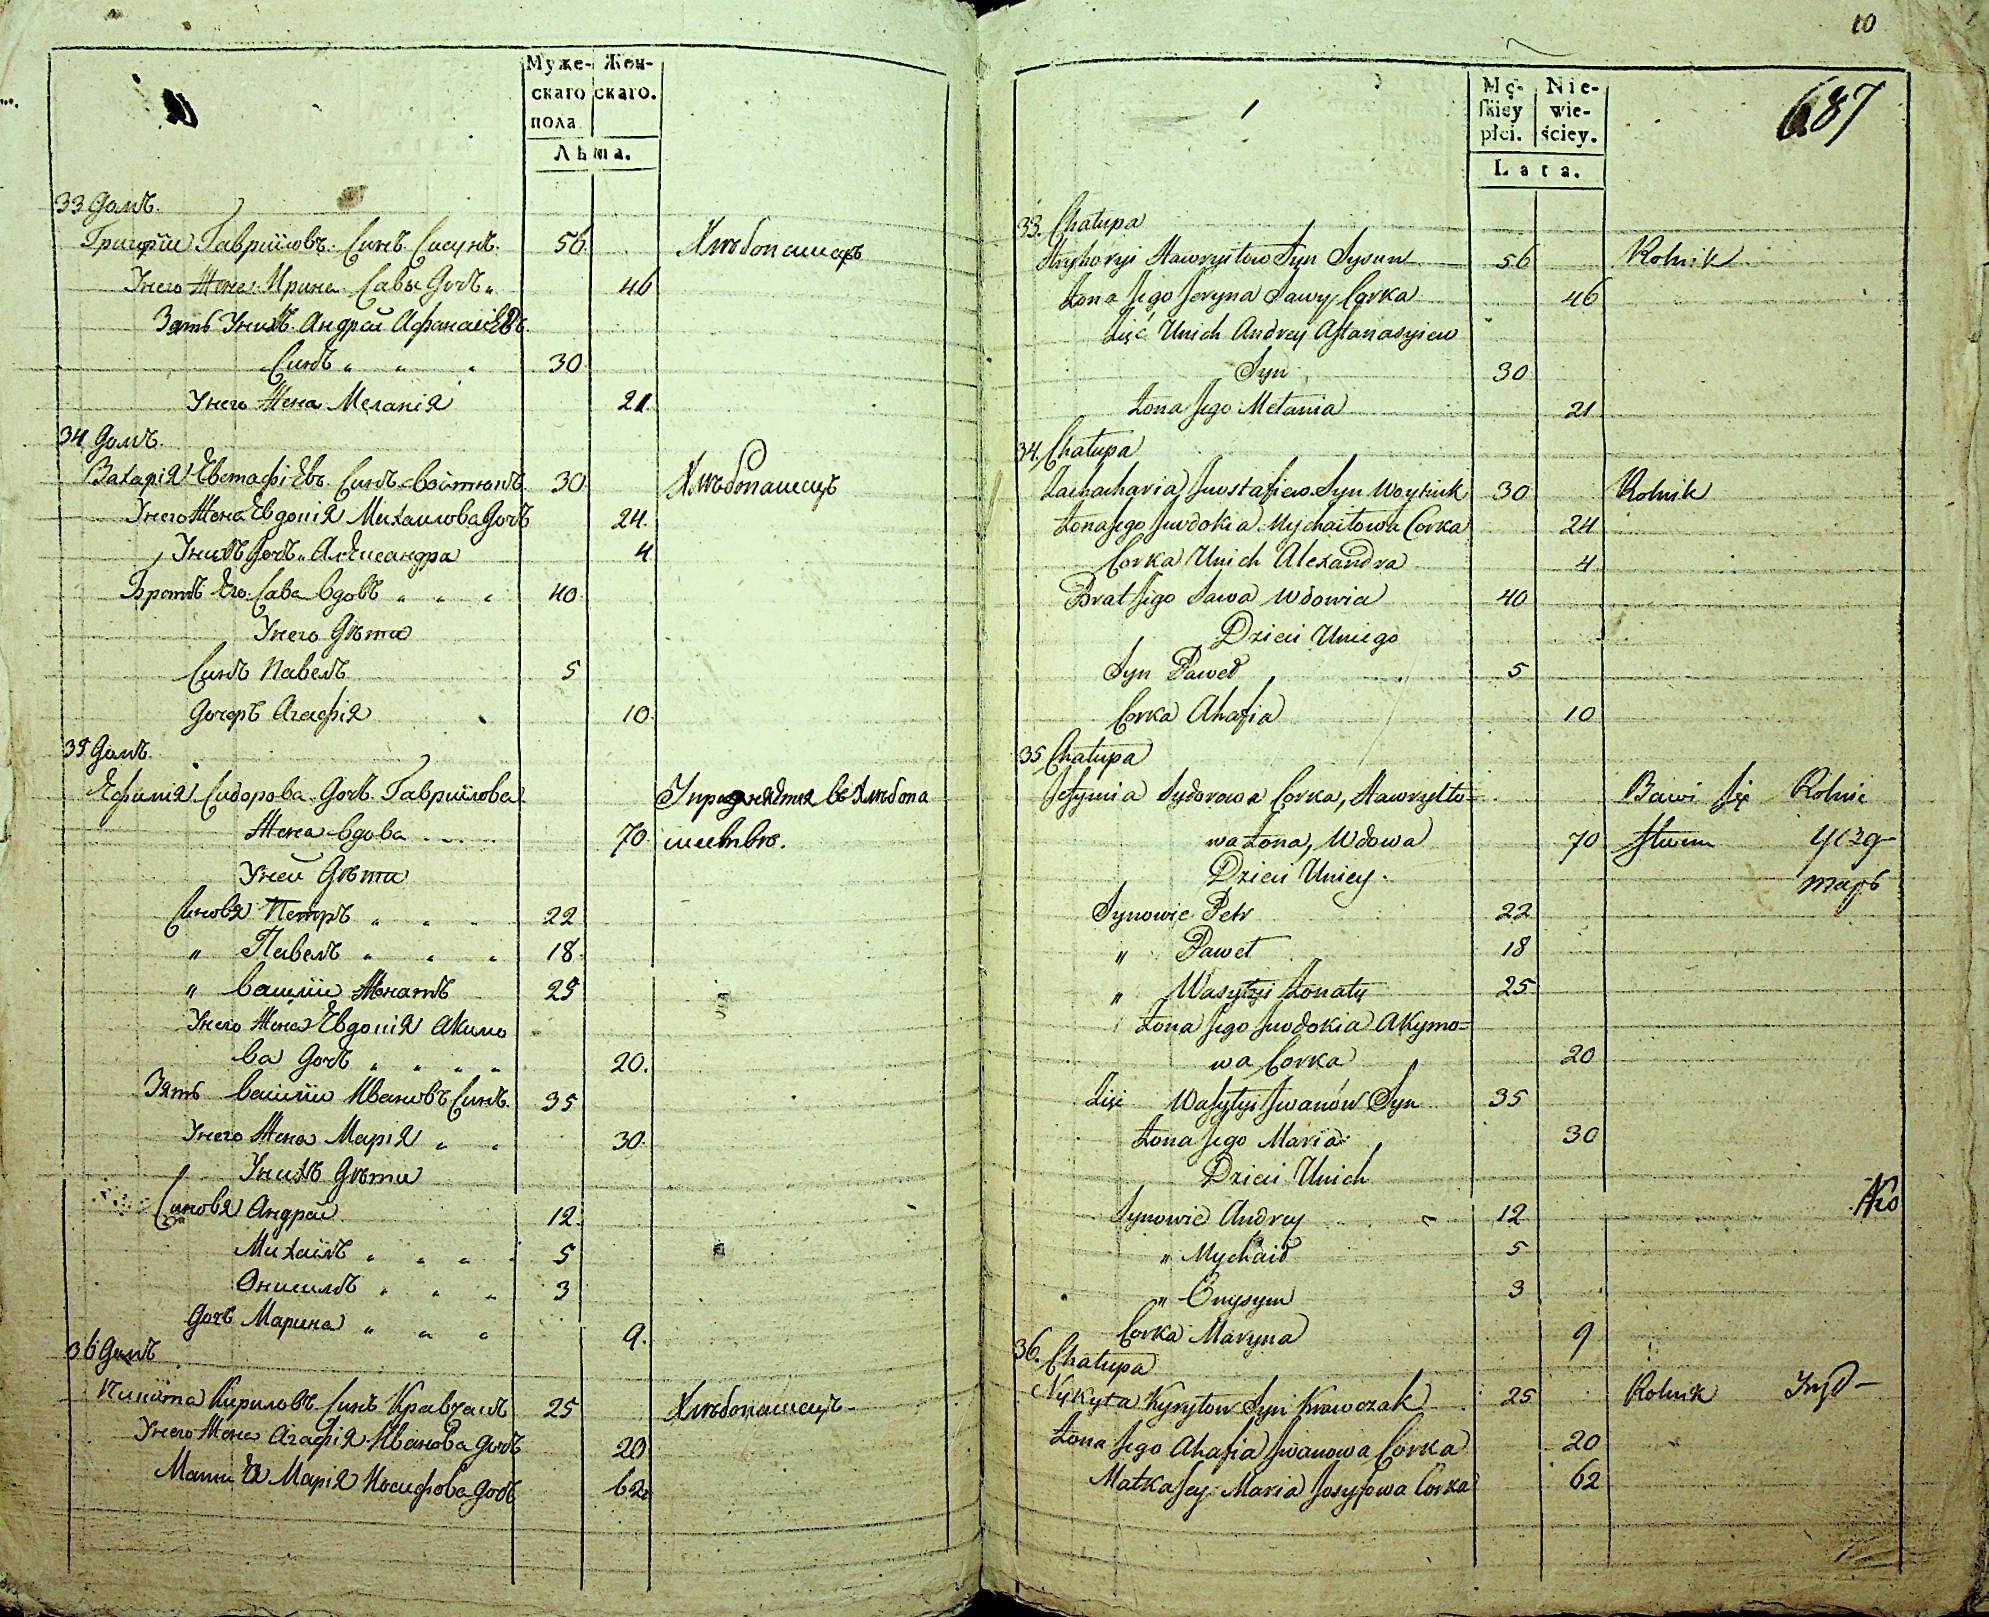 Муже- Жен-
скаго скаго.
пола
Лѣта.
33 Домъ.
Григорїи Гаврїиловъ Синъ Сисунъ. 56 Хлѣбопашецъ
Унего Жена Ирина Савы Дочъ „ 46
Зять Унихъ Андрей Афанасїевъ
Синъ „ „ „ 30
Унего Жена Меланїя 21
34 Домъ
Захарїя Евстафїевъ Синъ Войтюкъ 30 Хлѣбопашецъ
Унего Жена Евдокїя Михаилова Дочъ 24.
Унихъ Дочъ Александра 4
Братъ Его Сава вдовъ „ „ „ 40
Унего Дѣти
Синъ Павелъ 5
Дочеръ Агафїя 10
35 Домъ
Ефимїя Сидорова Дочъ Гаврїилова Упражняется в Хлѣбопа
Жена вдова 70 шествѣ.
Уней Дѣти
Синовя Петръ „ „ „ 22
„ Павелъ „ „ „ 18
„ Василїи Женатъ 25
Унего Жена Евдокїя Акимо
ва Дочъ „ „ „ „ 20.
Зять Василїи Ивановъ Синъ 35
Унего Жена Марїя „ „ 30
Унихъ Дѣти
Синовя Андрей 12
Михаилъ „ „ „ „ 5
Онисимъ „ „ „ 3
Дочъ Марина „ „ „ 9.
36 Домъ
Никита Кириловъ Синъ Кравчакъ 25 Хлѣбопашецъ
Унего Жена Агафїя Иванова Дочъ 20
Мати Ея Марїя Иосифова Дочъ 62
10
687
Mę- Nie-
skiey wie-
płci. ściey.
Lata.
33. Chałupa
Hryhoryi Hawryiłow Syn Sysun 56 Rolnik
Żona Jego Jeryna Sawy Corka 46
Zięć Unich Andrey Aftanasyiew
Syn 30
Żona Jego Mełania 21
34. Chałupa
Zachacharia Jwostafiew Syn Woytiuk 30 Rolnik
Żona Jego Jwdokia Mychaiłowa Corka 24
Corka Unich Alexandra 4
Brat Jego Sawa Wdowia 40
Dzieci Uniego
Syn Paweł 5
Corka Ahafia 10
35 Chałupa
Jefymia Sydorowa Corka, Hawryłło= Bawi Się Rolnic
wa Żona, Wdowa 70 stwem
Dzieci Uniey.
Synowie Petr 22
„ Paweł 18
„ Wasyłyi Żonaty 25
Żona Jego Jwdokia Akymo=
wa Corka 20
Zięć Wasyłyi Jwanów Syn 35
Żona Jego Maria 30
Dzieci Unich
Synowie Andrey 12
„ Mychaił 5
„ Onysym 3
Corka Maryna 9
36. Chałupa
Nykyta Kyryłow Syn Krawczak 25 Rolnik
Żona Jego Ahafia Jwanowa Corka 20
Matka Jey Maria Josyfowa Corka 62